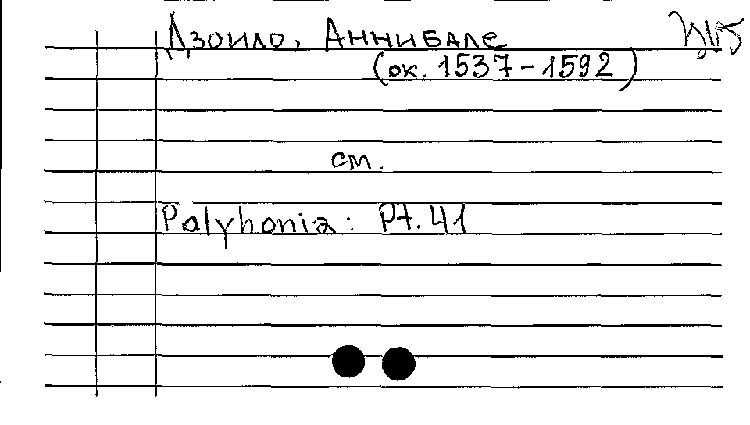 Дзоило, Аннибале
(ок. 1537-1592)
см.
Polyhonia: Pt. 41